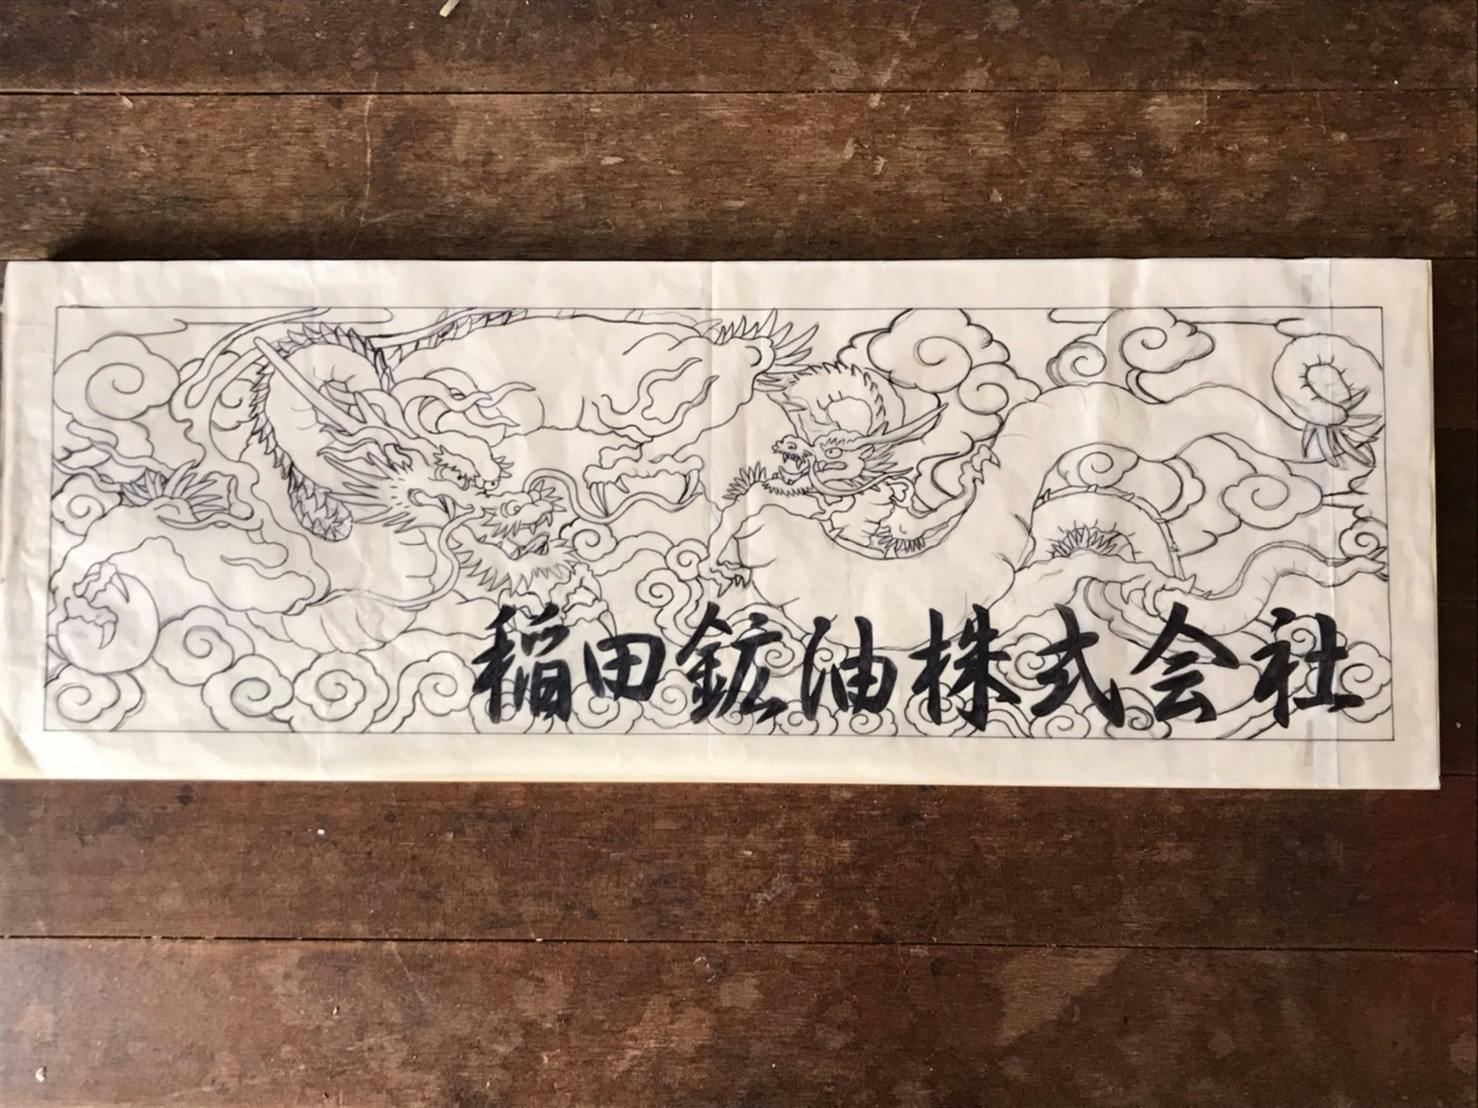 稲田鉱油株式会社